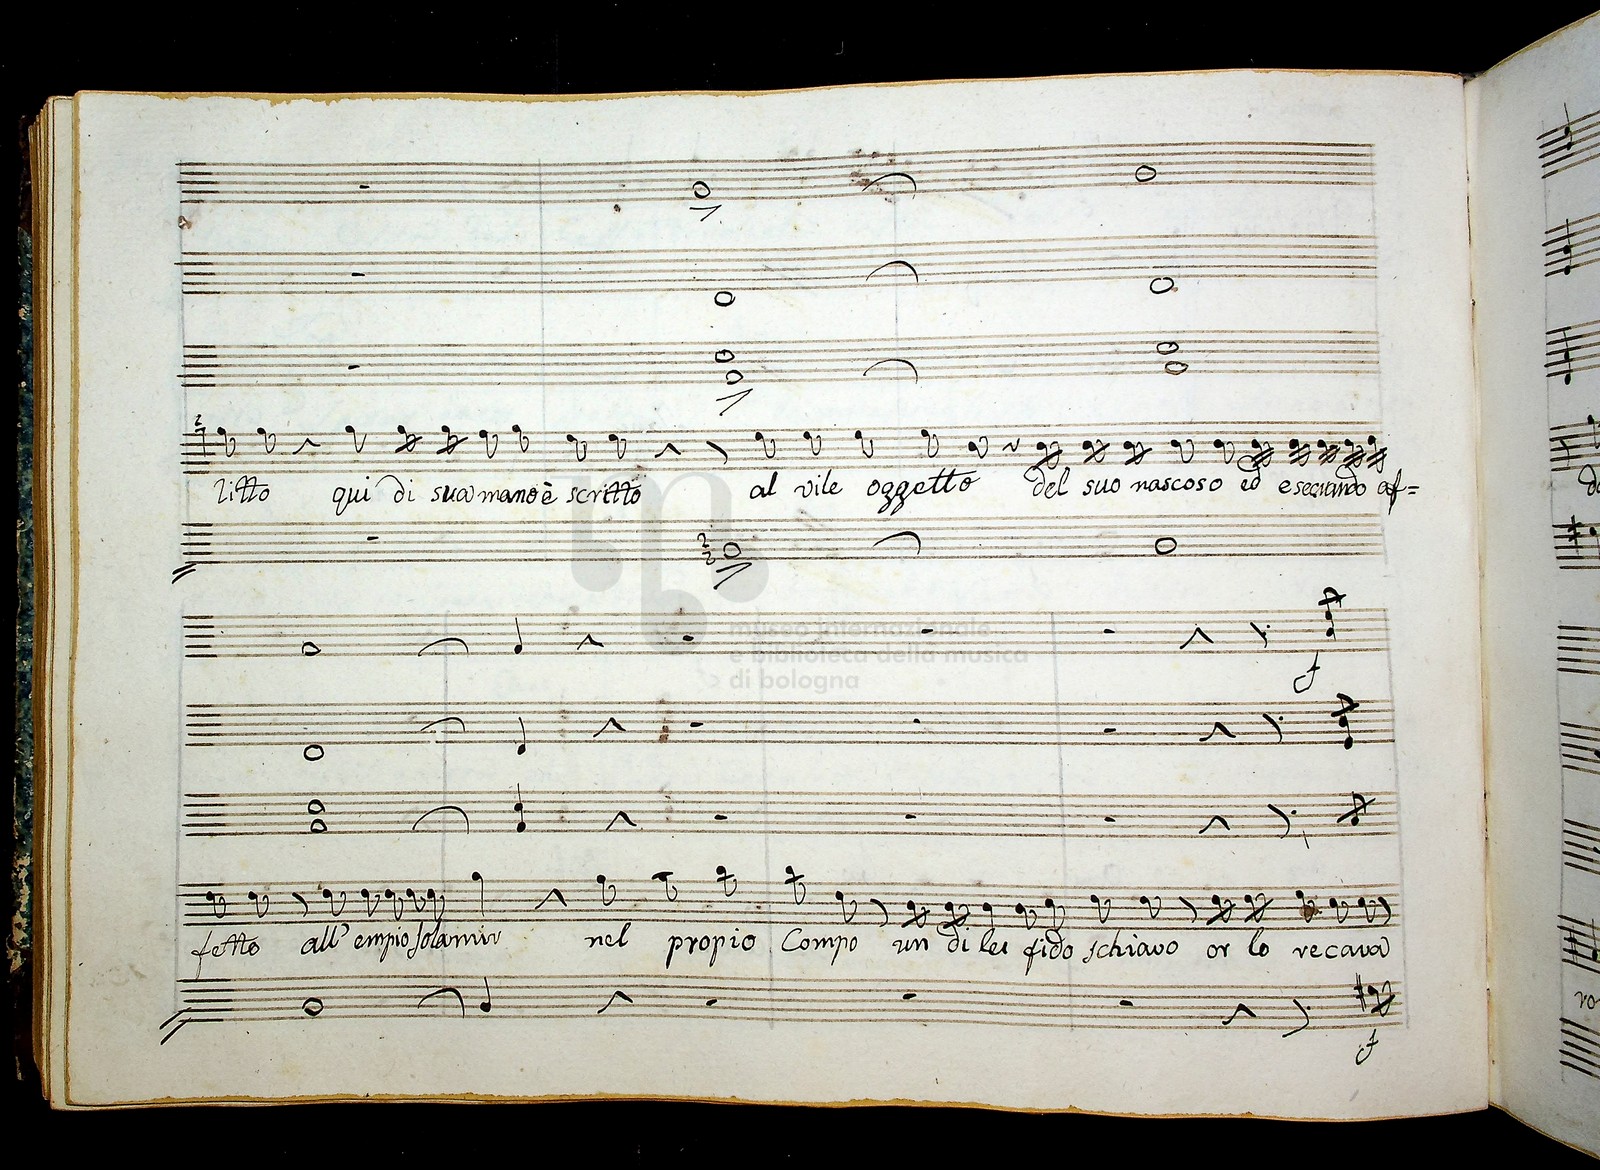 litto qui di sua mano è scritto al vile oggetto del suo nascoso ed esecrando af=
fetto all' empio solamir nel propio Campo un di lei fido schiavo or lo recava
f
f
museo internazionale
e biblioteca della musica
di bologna